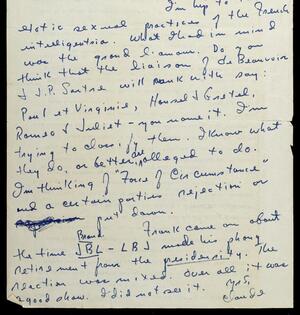 I'm hip to
exotic sexual practices of the French
intelligentsia. What I had in mind
was the grand l'amour. Do you
think that the liaison of de Beauvoir
& J.P. Sartre will rank with say:
Paul et Virginie, Hansel & Gretel,
Romeo & Juliet - you name it. I'm
trying to classify them. I know what
they do, or better, are alleged to do.
I'm thinking of "Force of Circumstance"
and a certain parties rejection or
put down.
Frank came on about
the time LBJ made his phony
retirement from the presidency. The
reaction was mixed. Over all it was
a good show. I did not see it.
Yrs,